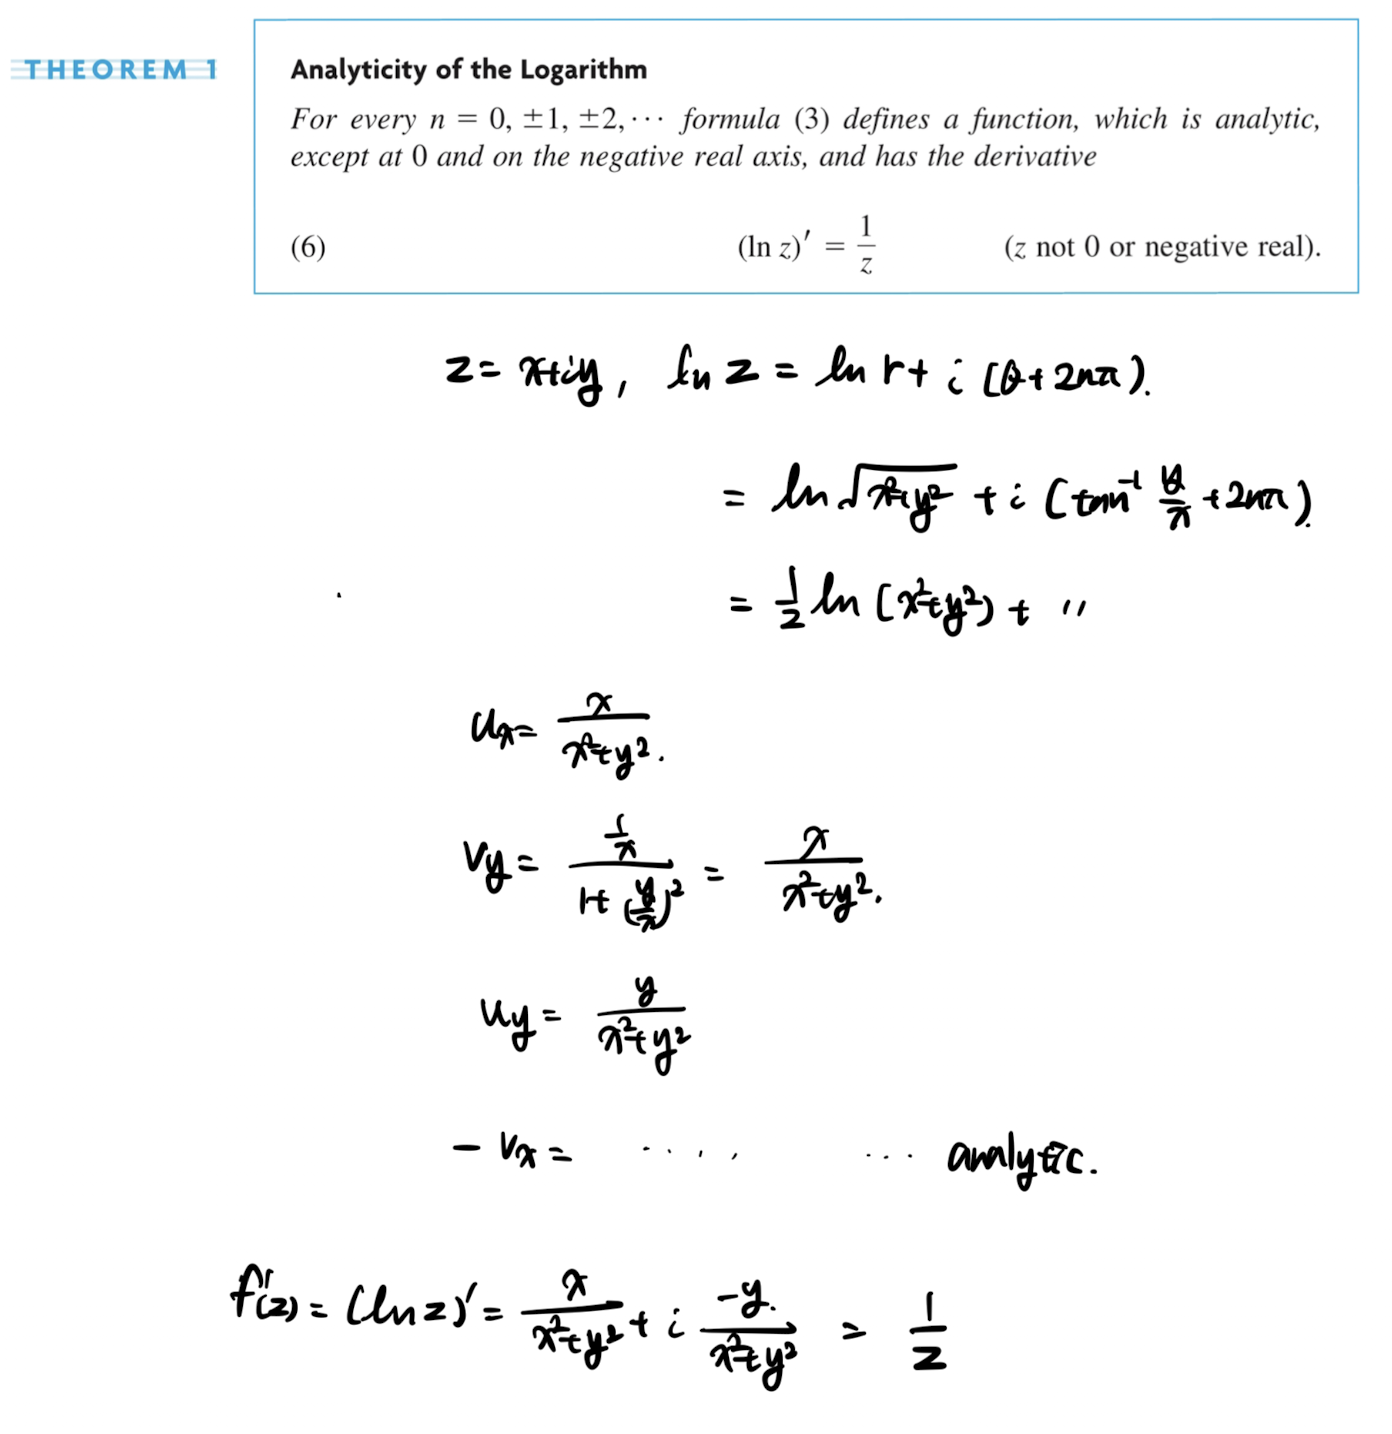 THEOREM 1
Analyticity of the Logarithm
For every n = 0, ±1, ±2, ··· formula (3) defines a function, which is analytic,
except at 0 and on the negative real axis, and has the derivative
(6) (ln z)′ = 1/z (z not 0 or negative real).
z = x+iy, ln z = ln r + i (θ + 2nπ).
= ln √(x²+y²) + i (tan⁻¹ y/x + 2nπ).
= 1/2 ln (x²+y²) + 〃
uₓ = x/(x²+y²).
v_y = (1/x)/(1+(y/x)²) = x/(x²+y²).
u_y = y/(x²+y²)
− vₓ = ···· ··· analytic.
f′(z) = (ln z)′ = x/(x²+y²) + i −y/(x²+y²) = 1/z